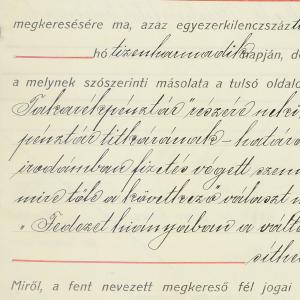 megkeresésére ma, azaz egyezerkilenczszázti
hó tizenharmadik napján, d
a melynek szószerinti másolata a tulsó oldalo
Takarékpénztár" részére neki
pénztár titkárának – határo
irodámban fizetés végett, szem
mire tőle a következő választ n
"Fedezet hiányában a válto
sithe
Miről, a fent nevezett megkereső fél jogai